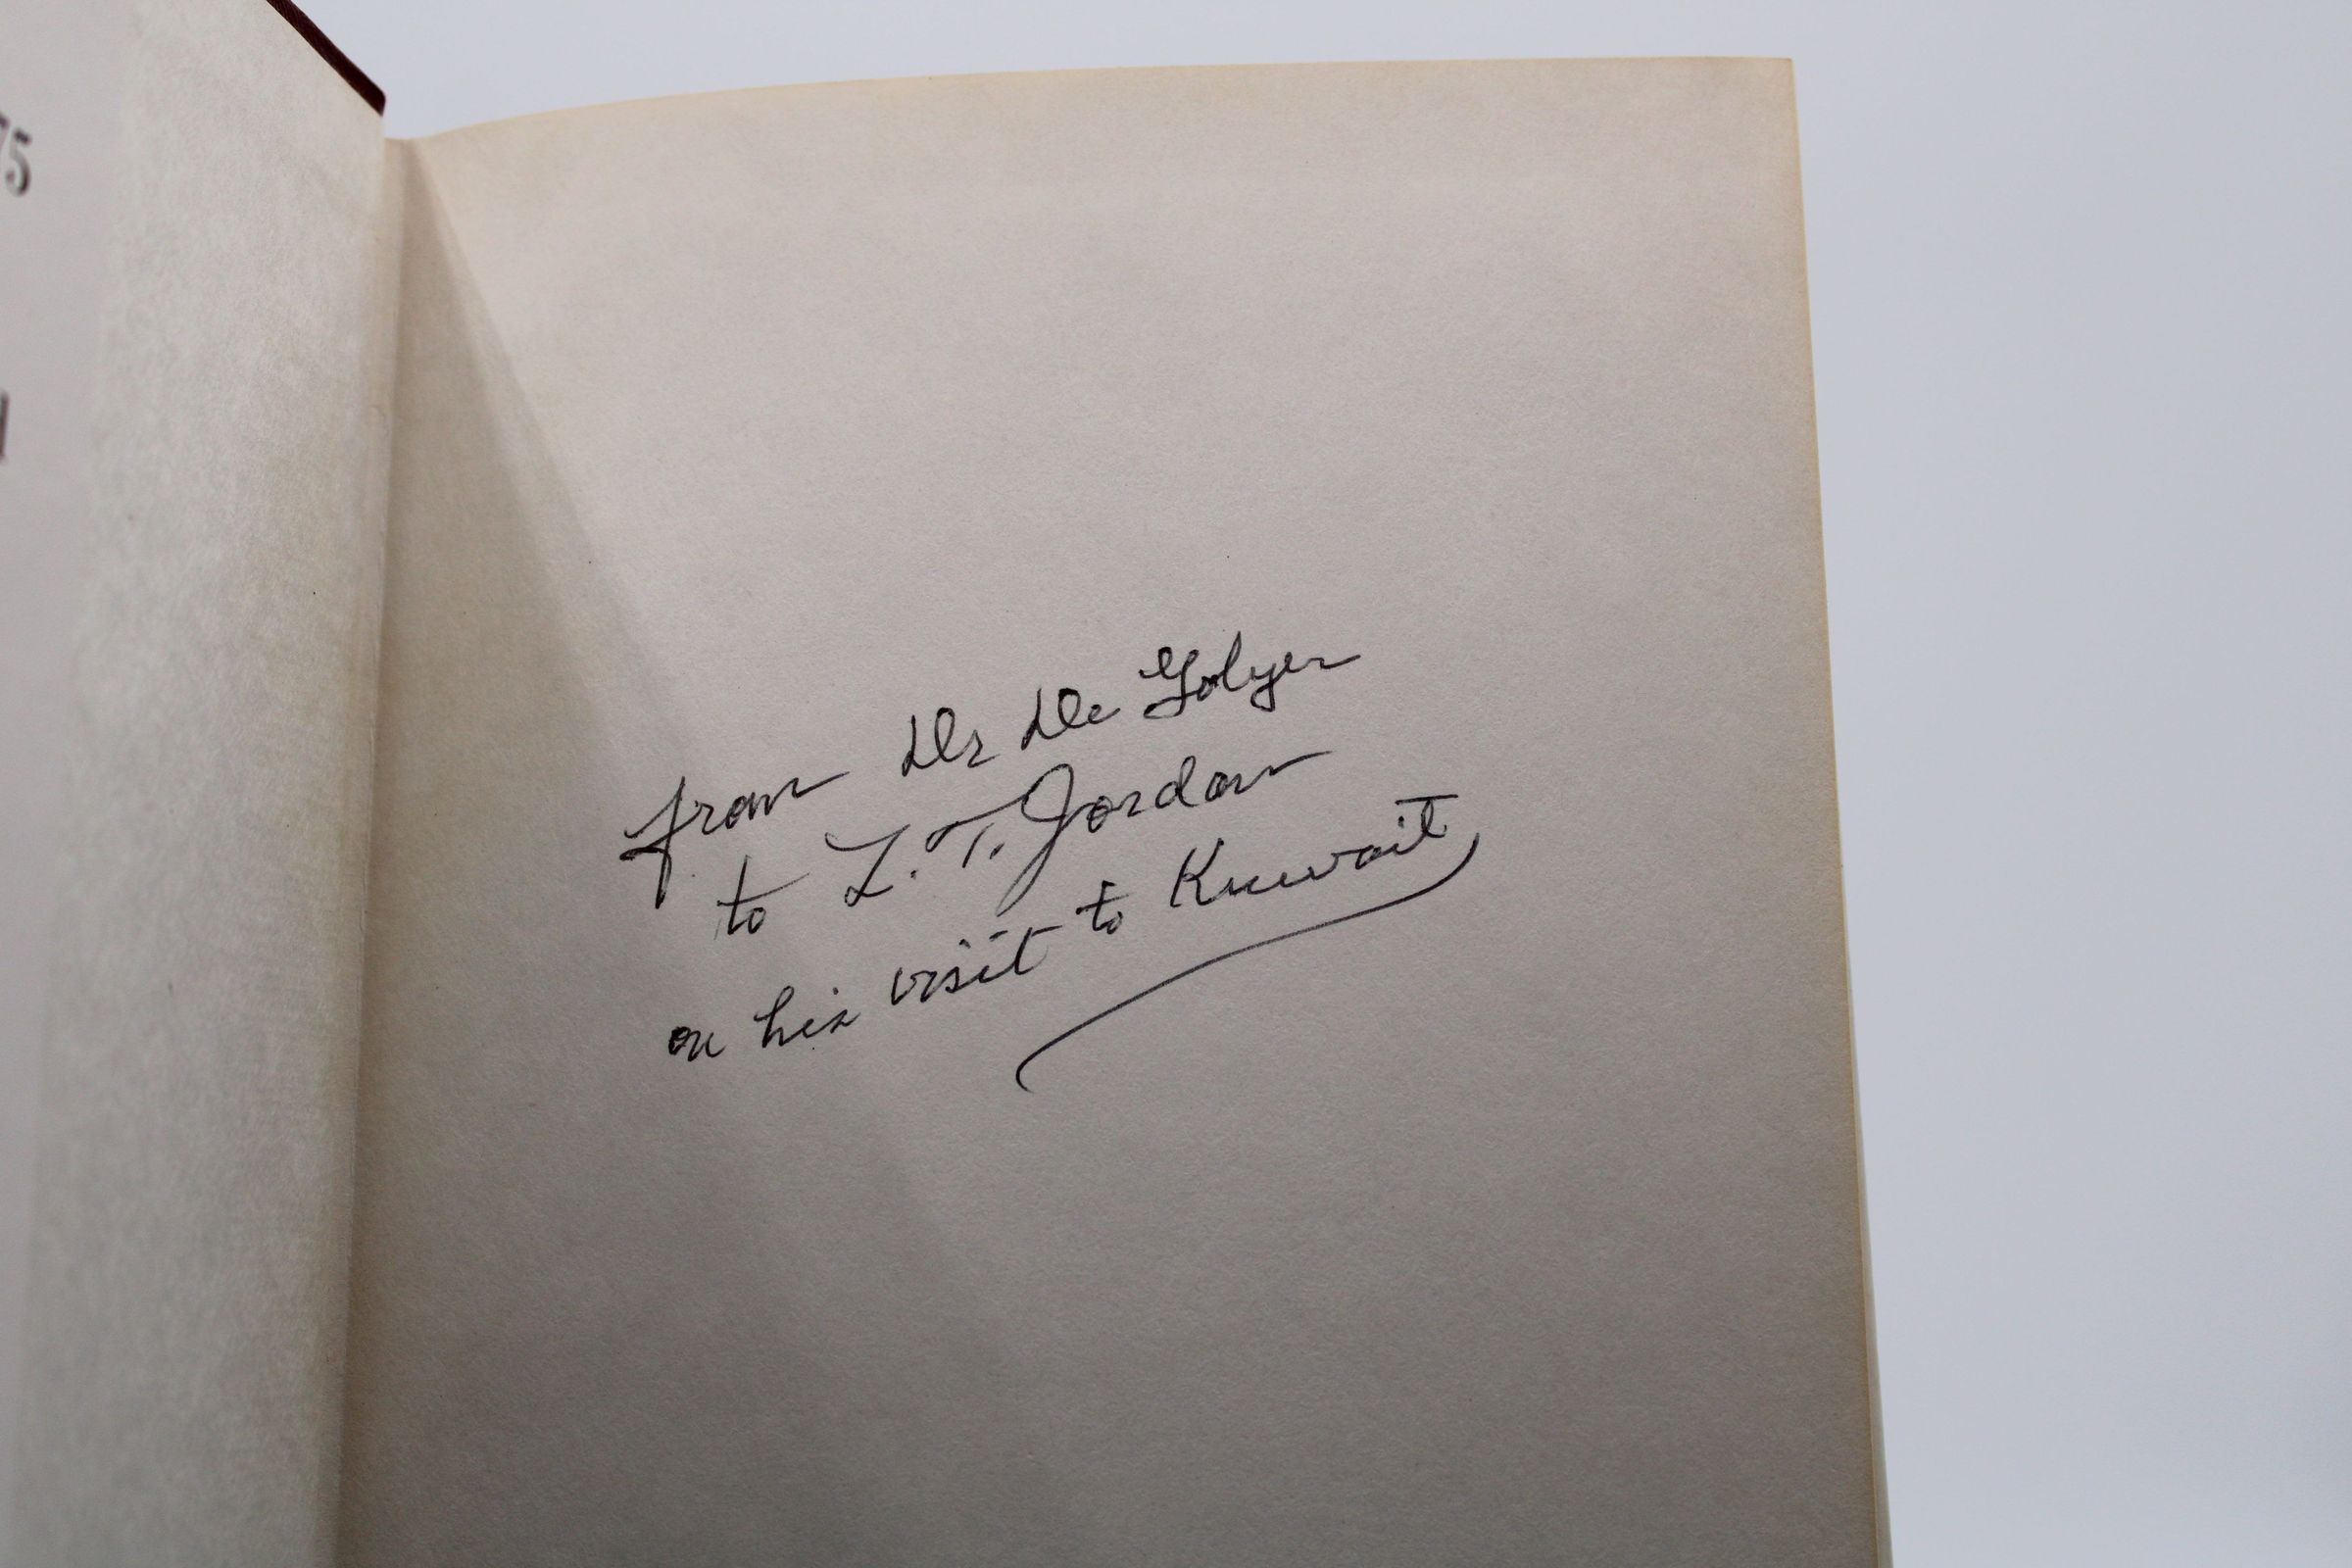 75
from Dr De Golyer
to L. T. Jordan
on his visit to Kuwait